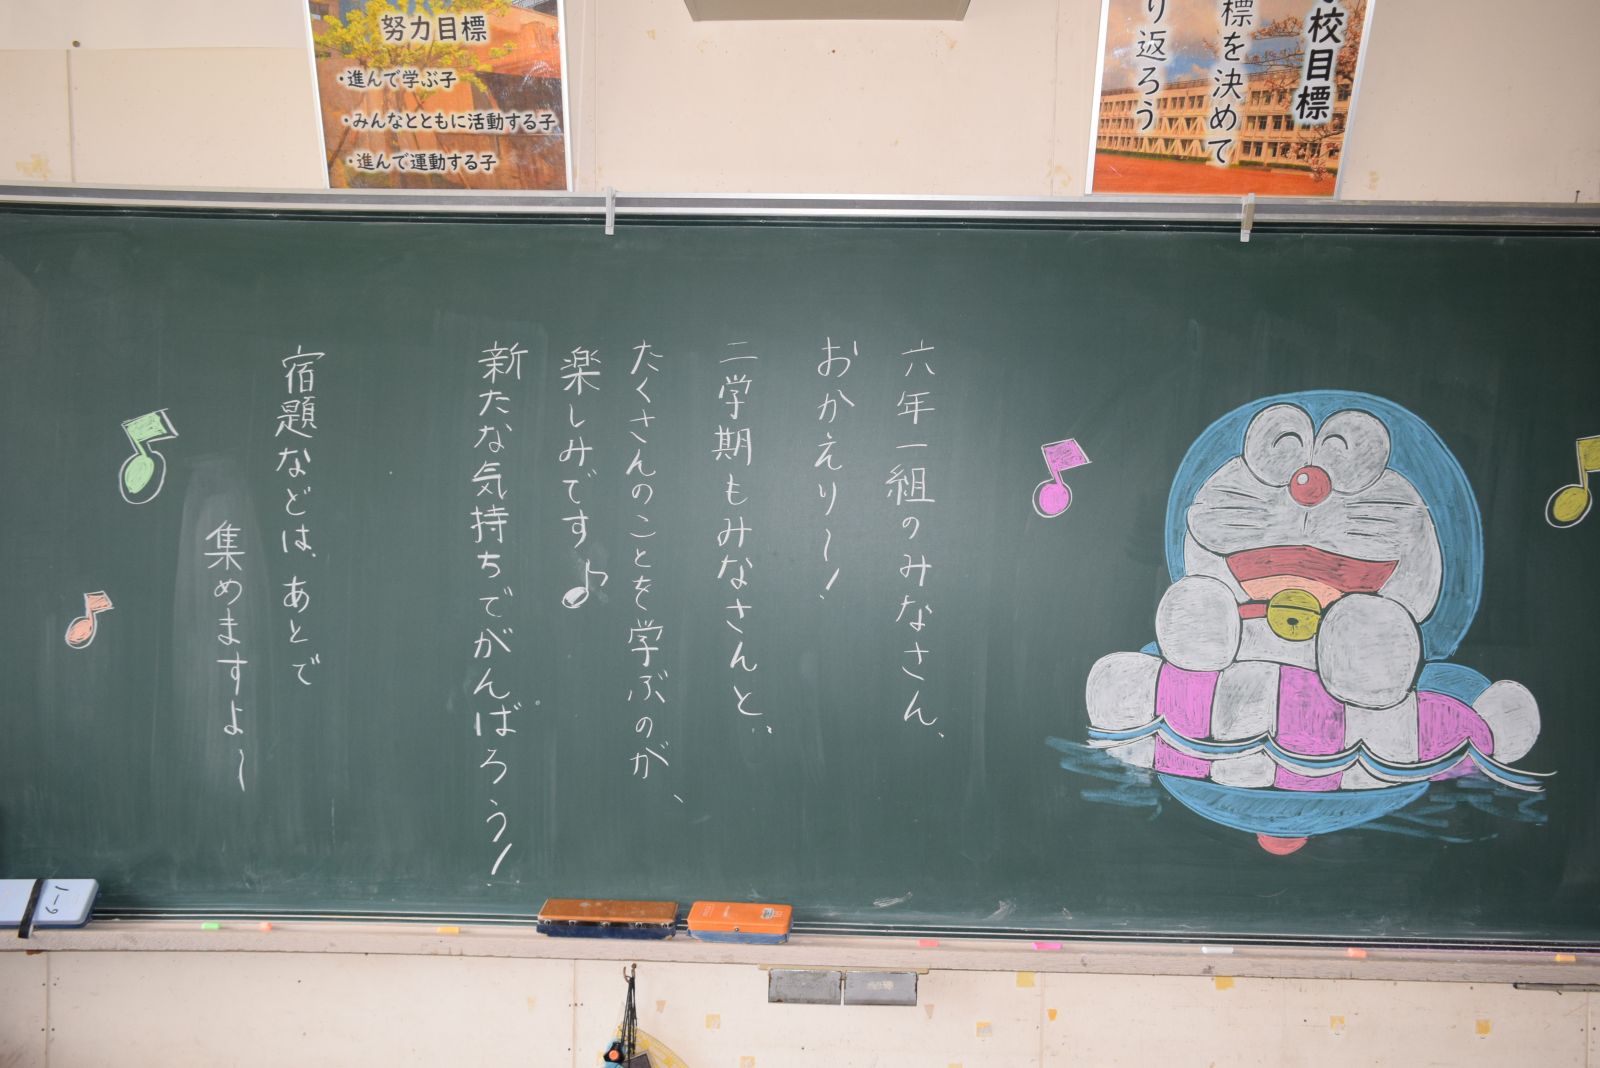 努力目標
・進んで学ぶ子
・みんなとともに活動する子
・進んで運動する子
校目標
標を決めて
り返ろう
六年一組のみなさん、
おかえり〜!
二学期もみなさんと、
たくさんのことを学ぶのが、
楽しみです♪
新たな気持ちでがんばろう!
宿題などは、あとで
集めますよ〜